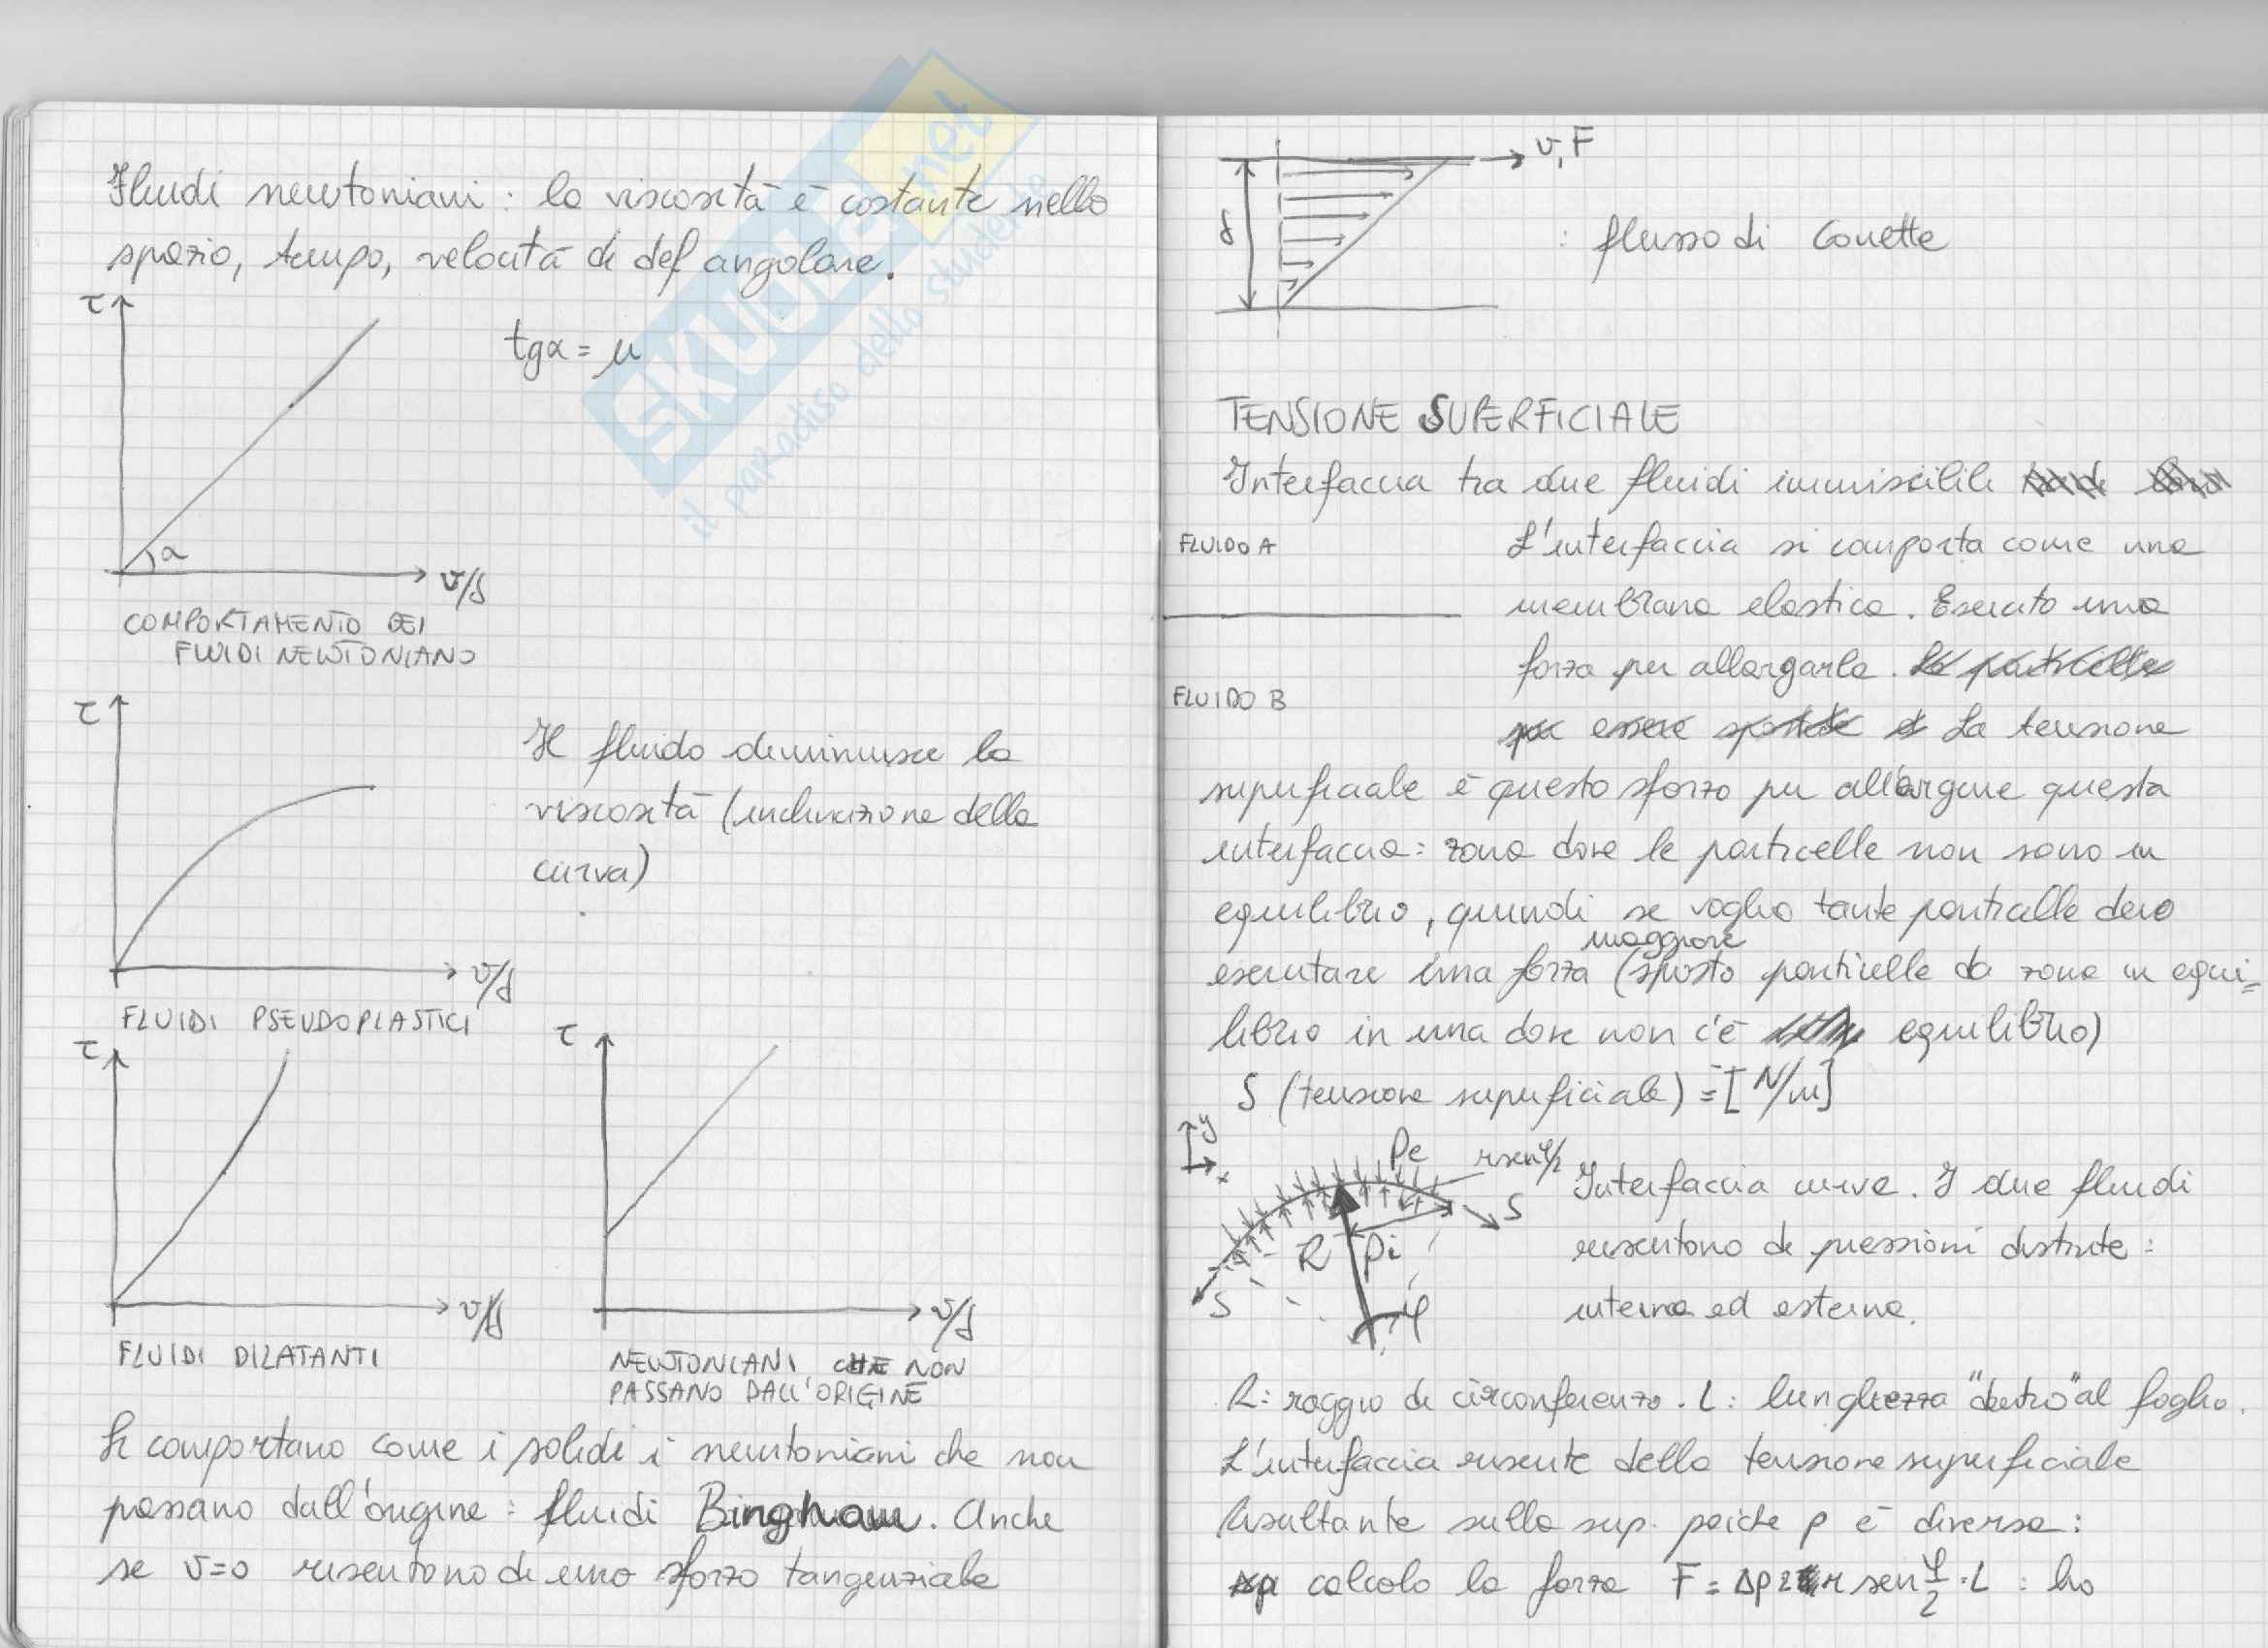 Fluidi newtoniani : la viscosità è costante nello
spazio, tempo, velocità di def angolare.
τ
tgα = μ
α
v/δ
COMPORTAMENTO DEI
FLUIDI NEWTONIANO
τ
Il fluido diminuisce la
viscosità (inclinazione della
curva)
v/δ
FLUIDI PSEUDOPLASTICI
τ
τ
v/δ
v/δ
FLUIDI DILATANTI
NEWTONIANI CHE NON
PASSANO DALL'ORIGINE
Si comportano come i solidi i newtoniani che non
passano dall'origine : fluidi Bingham. Anche
se v=0 risentono di uno sforzo tangenziale
v, F
δ
: flusso di Couette
TENSIONE SUPERFICIALE
Interfaccia tra due fluidi immiscibili
FLUIDO A
L'interfaccia si comporta come una
membrana elastica. Esercito una
forza per allargarla. Le particelle
FLUIDO B
per essere spostate La tensione
superficiale è questo sforzo per allargare questa
interfaccia: zona dove le particelle non sono in
equilibrio, quindi se voglio tante particelle devo
maggiore
esercitare una forza (sposto particelle da zona in equi=
librio in una dove non c'è equilibrio)
S (tensione superficiale) = [N/m]
y
x
Pe
r sen φ/2
S
R
Pi
S
φ
Interfaccia curva. I due fluidi
risentono di pressioni distinte :
interna ed esterna.
R: raggio di circonferenza. L: lunghezza "dentro" al foglio.
L'interfaccia risente della tensione superficiale
Risultante sulla sup. poiché p è diversa:
calcolo la forza F = Δp 2 r sen φ/2 · L : ho
SKUOLA.net
il paradiso dello studente